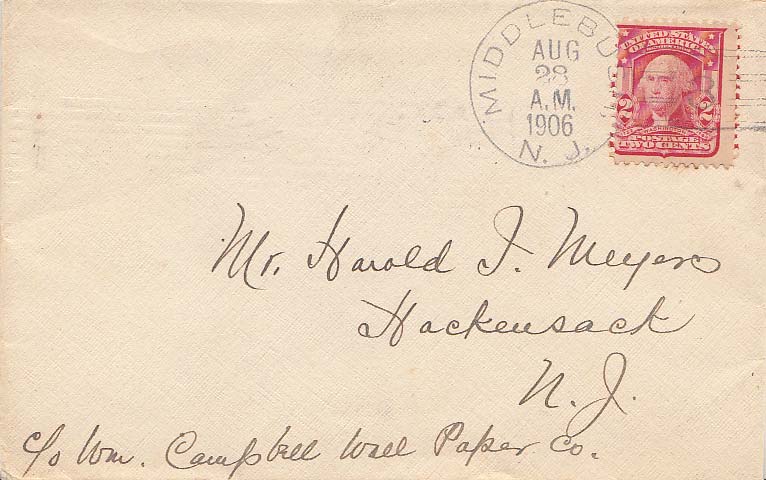 MIDDLEBU
AUG
28
A.M.
1906
N. J.
UNITED STATES
OF AMERICA
2 2
POSTAGE
TWO CENTS
Mr. Harold I. Meyers
Hackensack
N. J.
c/o Wm. Campbell Wall Paper Co.